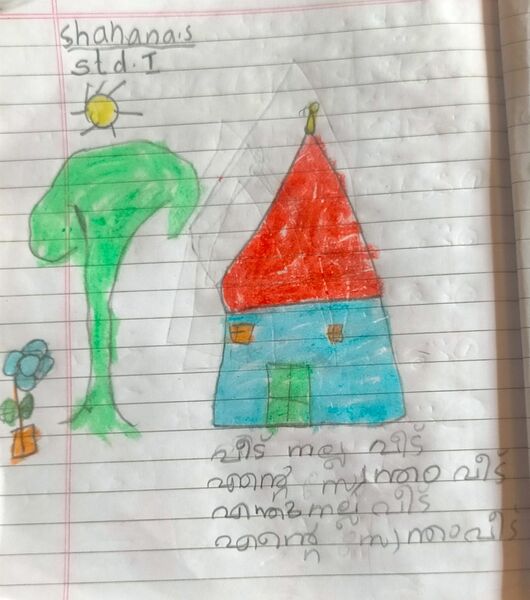 Shahana.s
std. I
വീട് നല്ല വീട്
എന്റെ സ്വന്തം വീട്
എന്തു നല്ല വീട്
എന്റെ സ്വന്തം വീട്